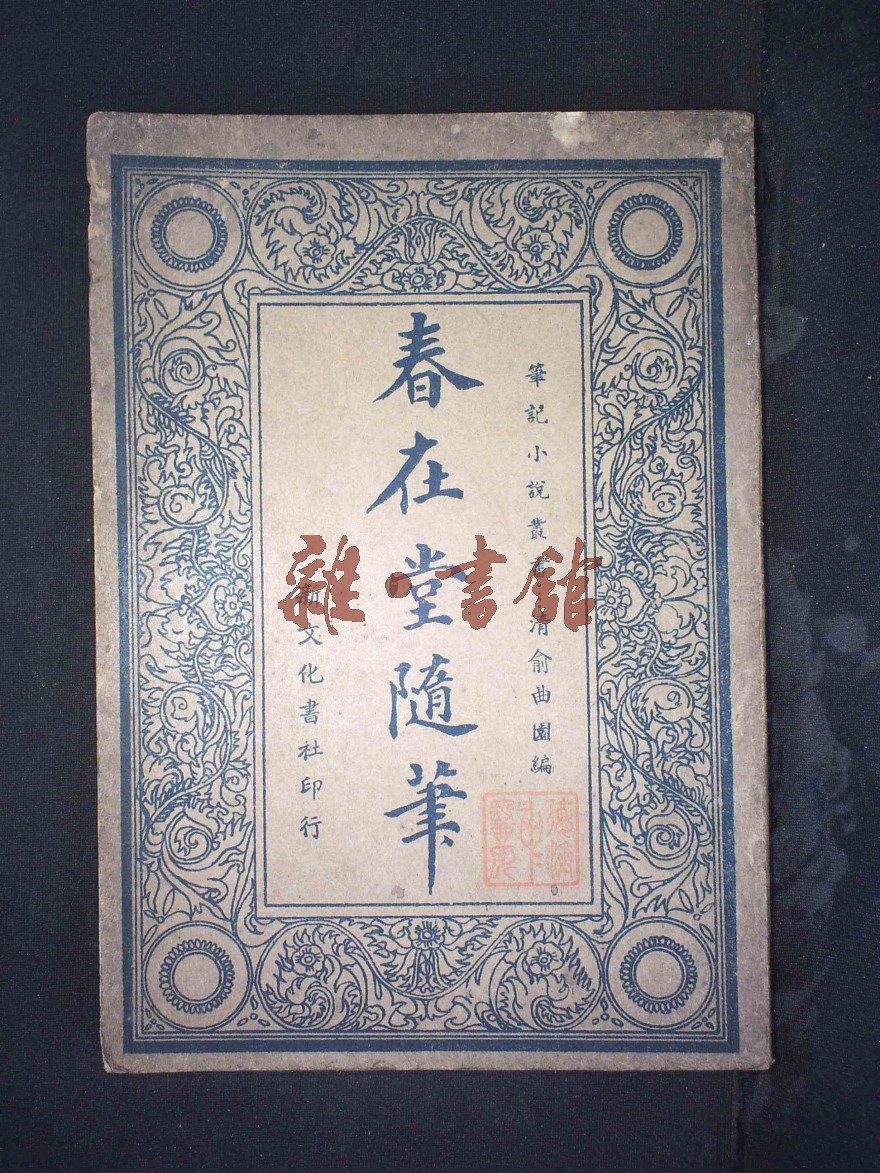 筆記小說叢書 清俞曲園編
春在堂隨筆
新文化書社印行
雜·書館